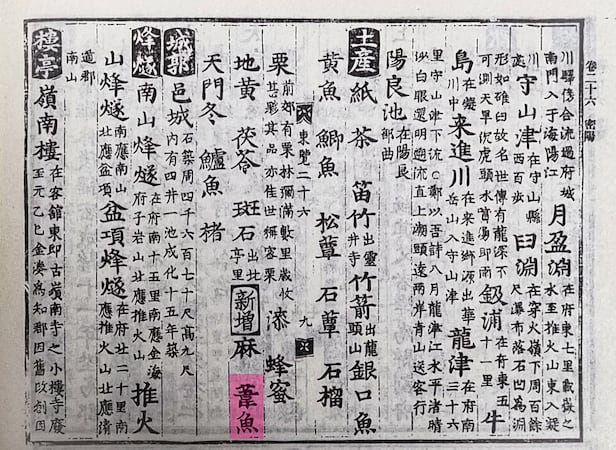 卷二十六 密陽
川驛傍合流過府城
南門入于海陽江
月盈淵
在府東七里載嶽之
水至推火山東入凝
川
守山津
在守山縣
西百步
臼淵
在穿火嶺下周百餘
尺瀑布落石凹爲淵
形如碓臼故名世傳有龍深不
可測天旱沉虎頭水蕩卽雨
鈒浦
在府東五
十一里
牛
島
川中
来進川
在来進鄕源出華
岳山入守山津
龍津
在府南
三十六
里守山津下流○鄭以吾詩八月龍津江水平渚晴
沙白眼還明流直上湖頭遠兩岸青山送客行
陽良池
在陽良
部曲
土産
紙 茶 笛竹
出靈
井寺
竹箭
出龍
頭山
銀口魚
黄魚 鯽魚 松蕈 石蕈 石榴
栗
前郊有栗林彌滿數里歲收
甚夥其品亦佳世稱密栗
漆 蜂蜜
東覽二十六 九
地黄 茯苓 斑石
出北
亭里
新增
麻 葦魚
天門冬 鱸魚 楮
城郭
邑城
石築周四千六百七十尺高九尺
内有四井一池成化十五年築
烽燧
南山烽燧
在府南十五里南應金海
府子岩山北應推火山
推火
山烽燧
南應南山
北應盆項
盆項烽燧
在府北二十里南
應推火山北應淸
道郡
南山
樓亭
嶺南樓
在客舘東卽古嶺南寺之小樓寺廢
至元乙巳金湊爲知郡因舊改創因